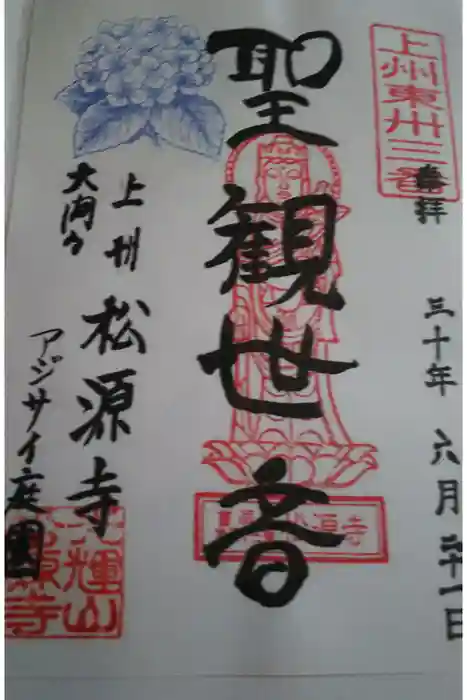 上州東州三番
奉拝
三十年 六月 二十一日
聖観世音
松源寺
上州 松源寺
大内々
アジサイ庭園
輝山
源寺